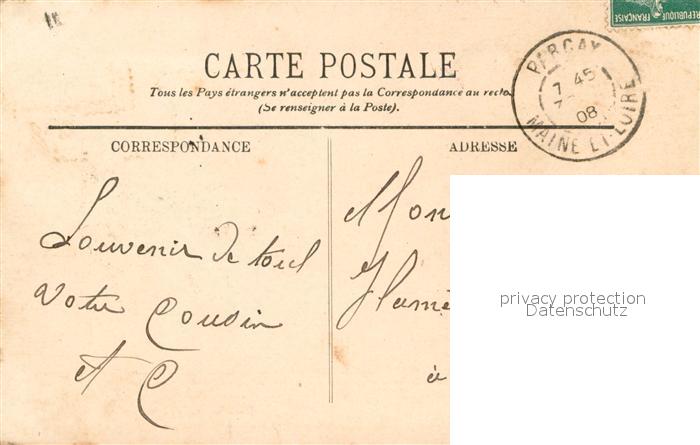 RÉPUBLIQUE FRANÇAISE
PARCAY
7 45
08
MAINE ET-LOIRE
CARTE POSTALE
Tous les Pays étrangers n'acceptent pas la Correspondance au recto
(Se renseigner à la Poste).
CORRESPONDANCE
ADRESSE
Souvenir de toul
votre Cousin
A C
Mon
à
privacy protection
Datenschutz